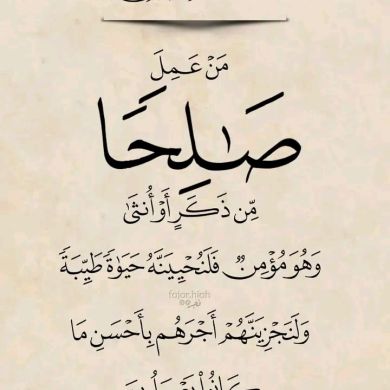 مَنْ عَمِلَ
صَـٰلِحًا
مِّن ذَكَرٍ أَوْ أُنثَىٰ
وَهُوَ مُؤْمِنٌ فَلَنُحْيِيَنَّهُ حَيَوٰةً طَيِّبَةً
fajar.hiah
وَلَنَجْزِيَنَّهُمْ أَجْرَهُم بِأَحْسَنِ مَا